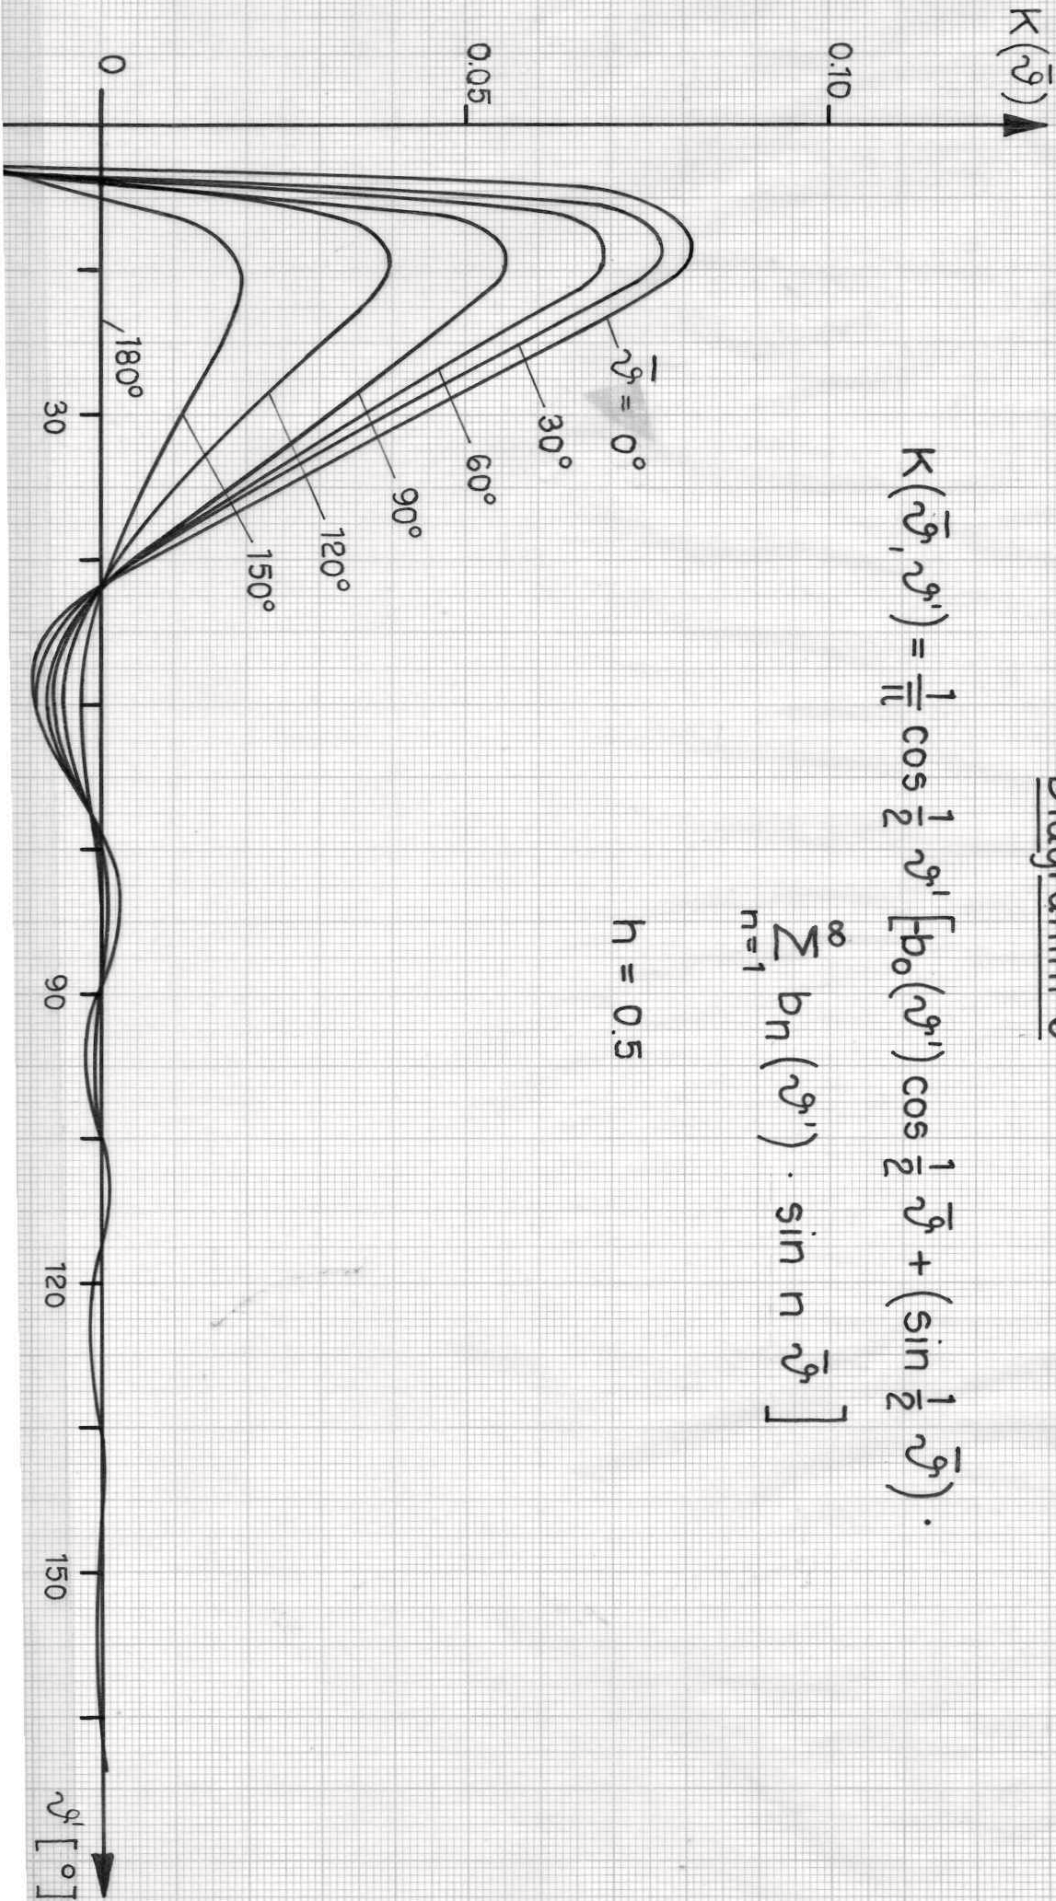 K(ϑ̄)
0.10
0.05
0
K(ϑ̄, ϑ') = 1/π cos 1/2 ϑ' [-b₀(ϑ') cos 1/2 ϑ̄ + (sin 1/2 ϑ̄) ·
∞ Σ n=1 bₙ(ϑ') · sin n ϑ̄ ]
h = 0.5
ϑ̄ = 0°
30°
60°
90°
120°
150°
180°
30
90
120
150
ϑ' [°]